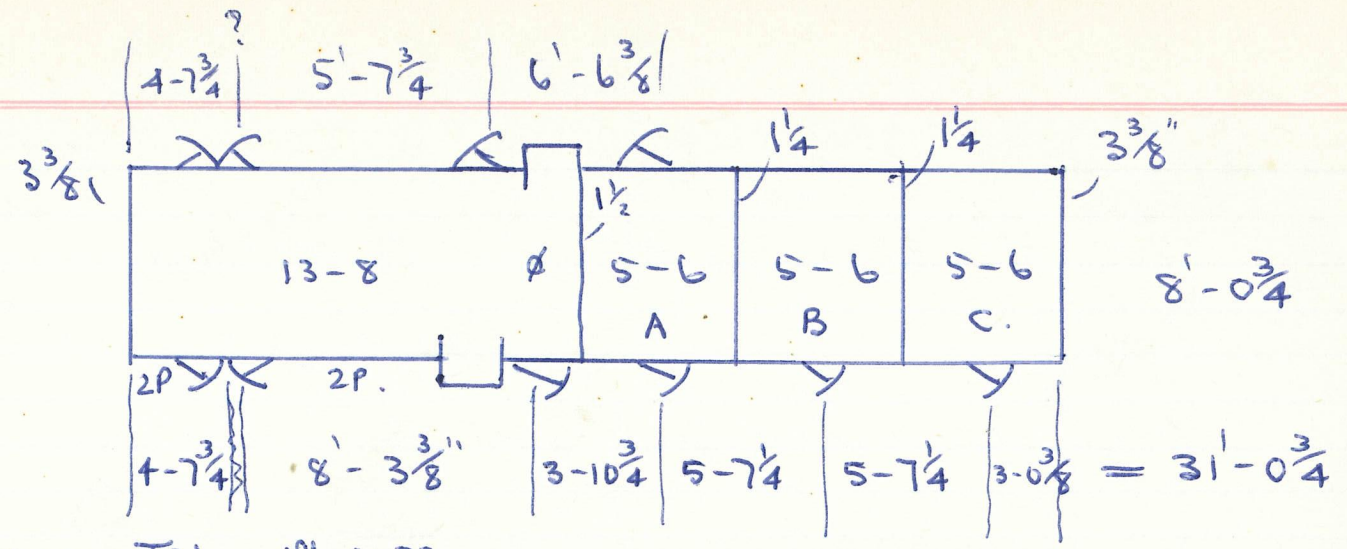 ?
4-7¾ 5'-7¾ 6'-6⅜
3⅜ 1¼ 1¼ 3⅜"
1½
13-8 ø 5-6 5-6 5-6 8'-0¾
A B C.
2P 2P.
4-7¾ 8'-3⅜" 3-10¾ 5-7¼ 5-7¼ 3-0⅜ = 31'-0¾